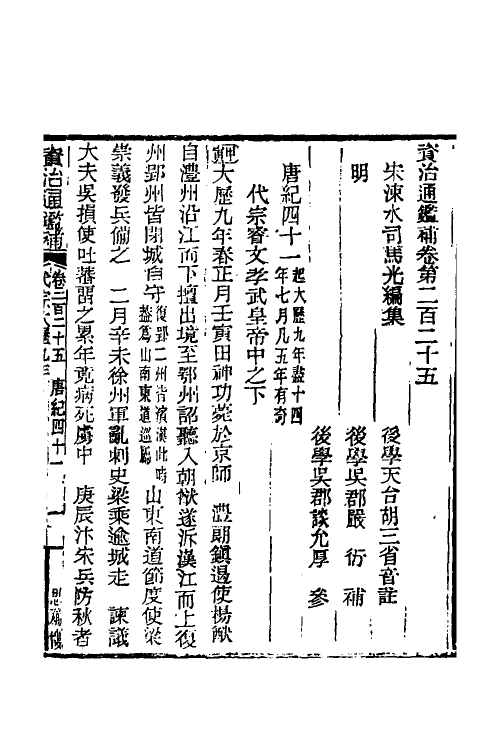 資治通鑑補卷第二百二十五
宋涑水司馬光編集　後學天台胡三省音註
明　後學吳郡嚴　衍　補
後學吳郡談允厚　參
唐紀四十一起大歷九年盡十四年七月凡五年有奇
代宗睿文孝武皇帝中之下
甲寅大歷九年春正月壬寅田神功薨於京師　澧朗鎮遏使楊猷
自澧州沿江而下擅出境至鄂州詔聽入朝猷遂泝漢江而上復
州郢州皆閉城自守復郢二州皆濱漢此時蓋爲山南東道巡屬山東南道節度使梁
崇義發兵備之　二月辛未徐州軍亂刺史梁乘逾城走　諫議
大夫吳損使吐蕃畱之累年竟病死虜中　庚辰汴宋兵防秋者
資治通鑑補　卷二百二十五　唐紀四十一　一　思補樓